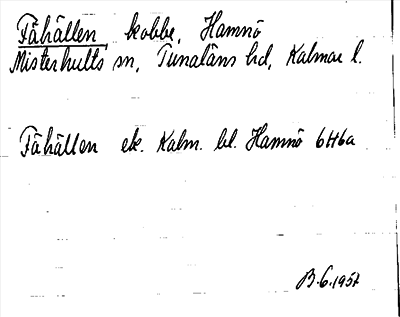 Fähällen, kobbe, Hamnö
Misterhults sn, Tunaläns hd, Kalmar l.
Fähällen ek. Kalm. bl. Hamnö 6H6a
B.G.1957